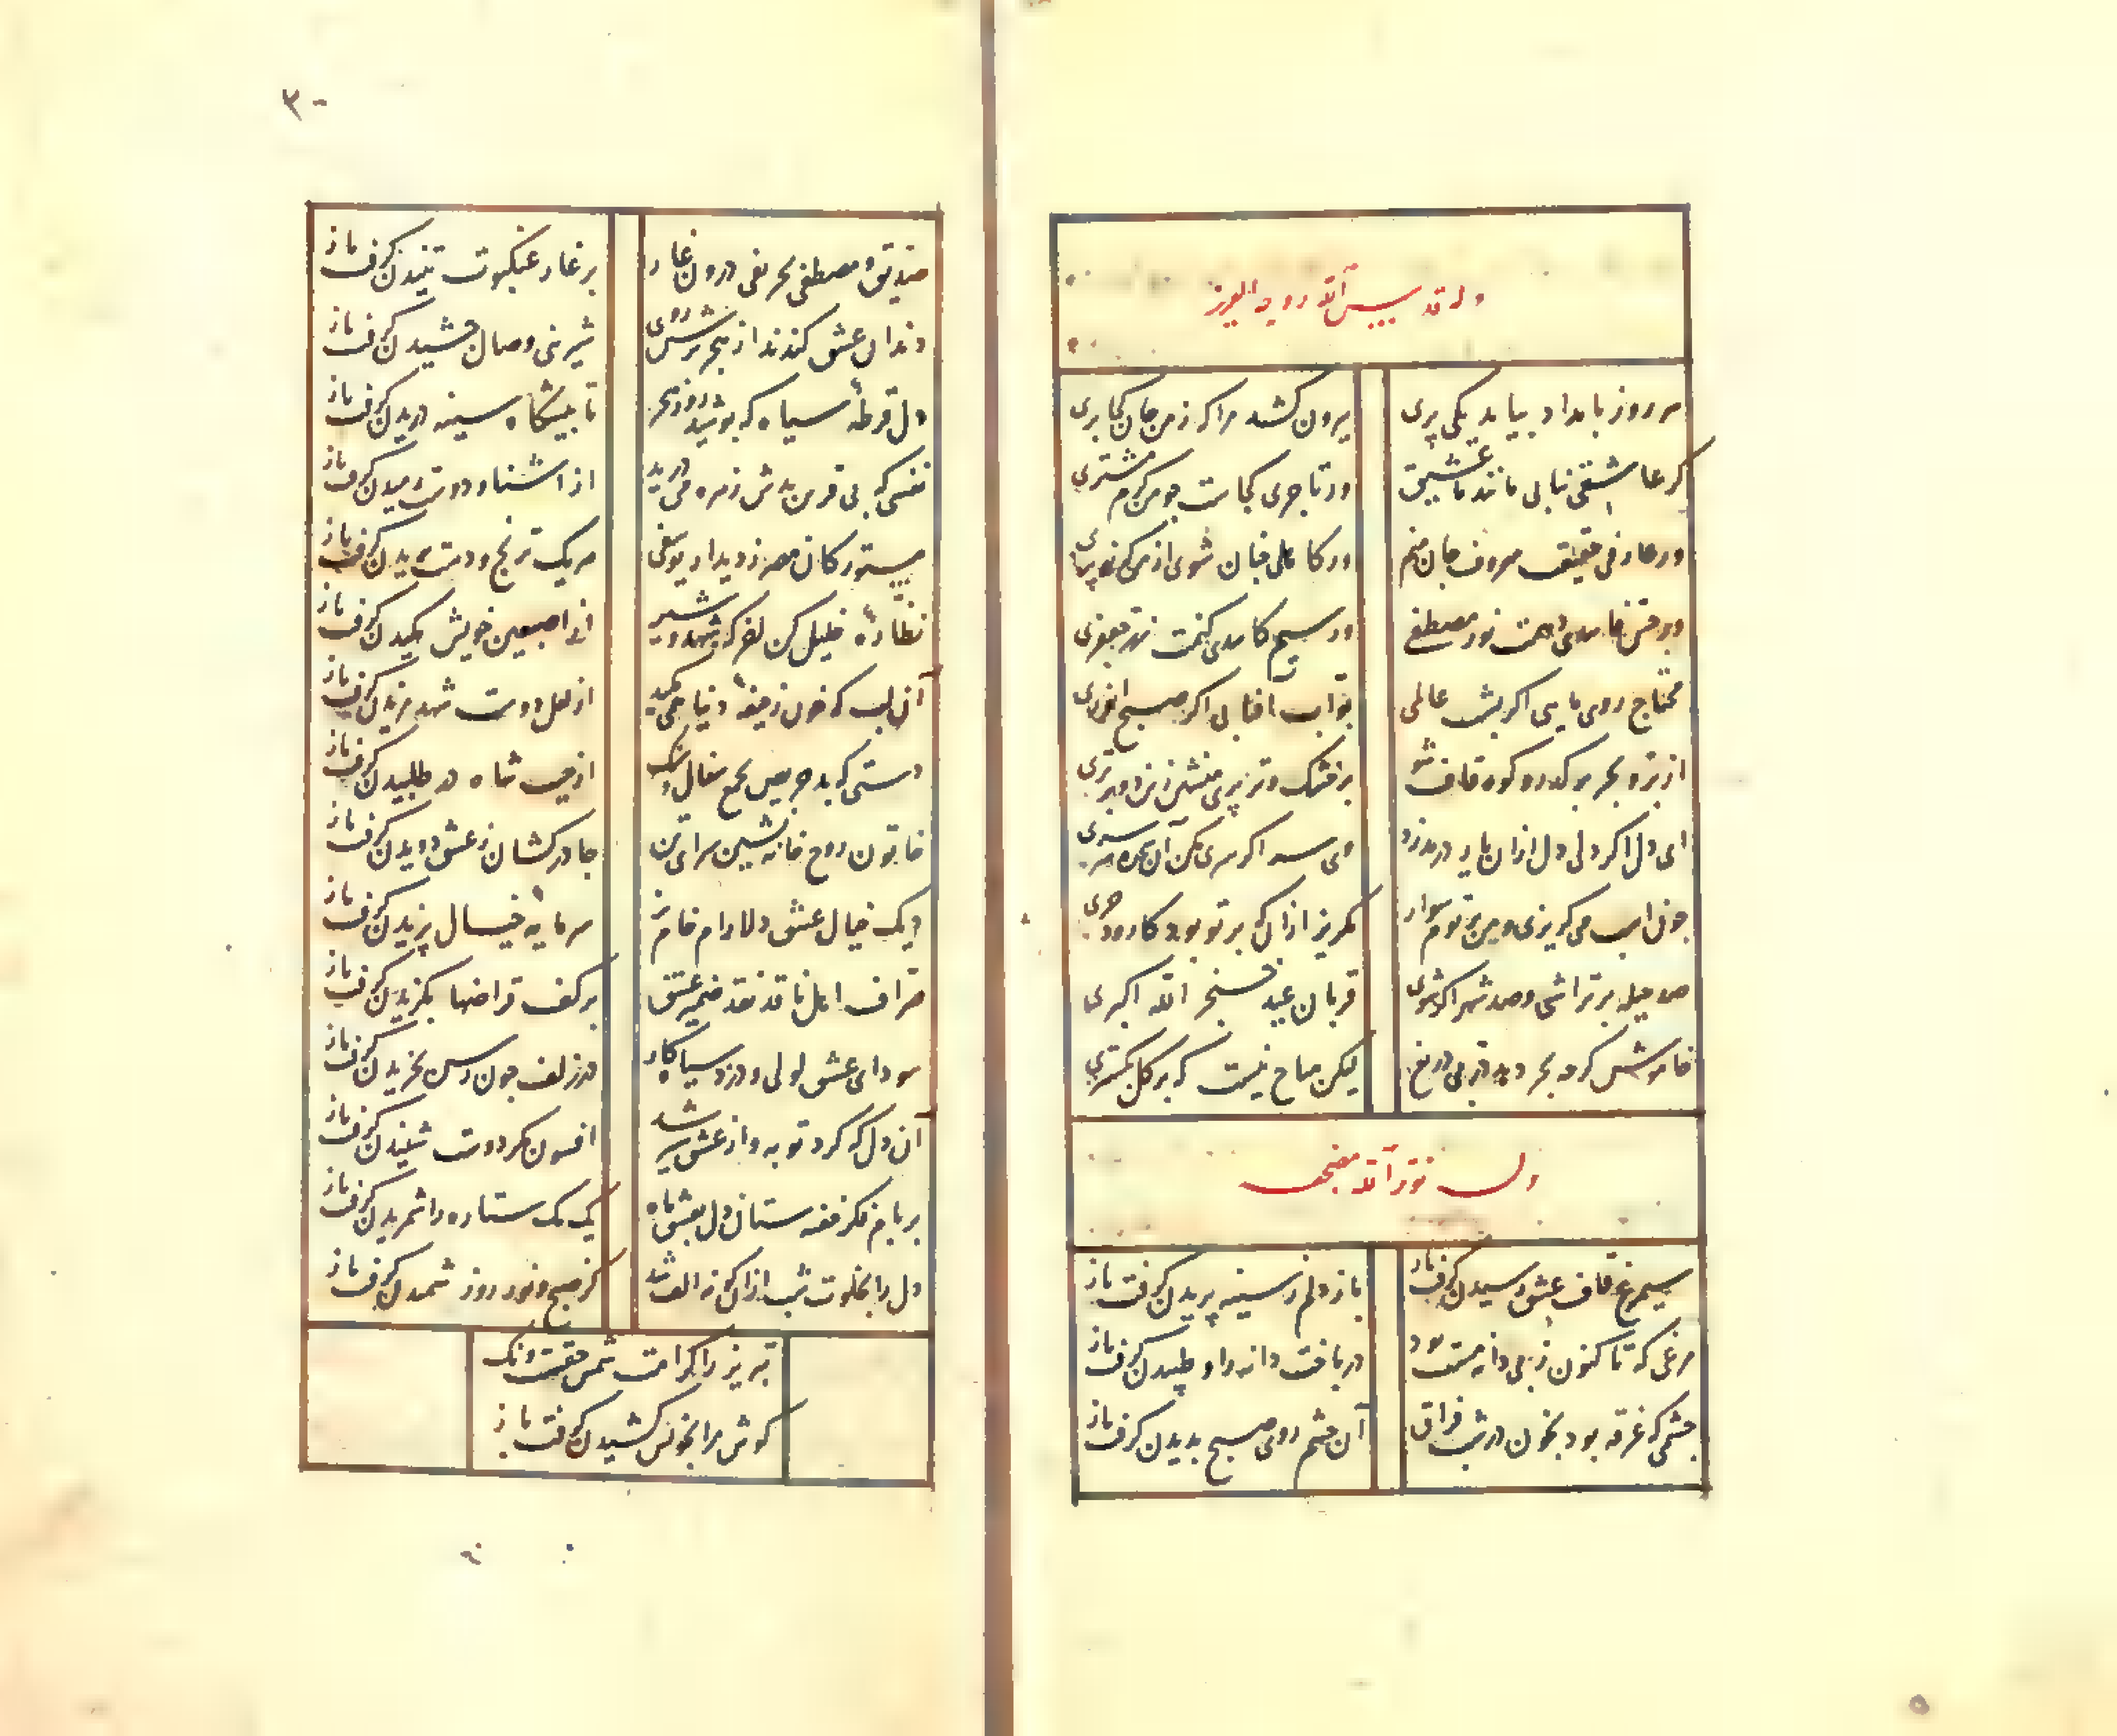 وله قدس الله روحه العزیز
هر روز بامداد بیاید یکی پری
بیرون کشد مرا که ز من جان کجا بری
کر عاشقی نیابی مانند ما عشیق
ور تاجری کجاست جو من کرم مشتری
ور عارفی حقیقت معروف جان منم
ور کاهلی جنان شوی از من که نو پری
محتاج روی مایی اکر بشت عالمی
بواب افتابی اکر صبح انوری
از بر و بحر بکذر و کوه قاف شو
بر خشک و تر بری منشین زین دو برتری
ای دل اکر دلی دل ازان یار در مدزد
وی سر اکر سری مکن آن سجده سرسری
جون اسب می کریزی و من بر توم سوار
مکریز ازان که بر تو بود کار
صد حیله بر تراشی و صد شهر اکر شوی
قربان عید خنجر الله اکبری
خاموش کرجه بحر دهد در بی دریغ
لیکن مباح نیست که بر کل بکستری
وله نور الله مضجعه
سیمرغ قاف عشق رسیدن کرفت باز
باز دلم ز سینه پریدن کرفت باز
مرغی که تا کنون ز بی دانه مست بود
دریافت دانه را و طپیدن کرفت باز
جشمی که غرقه بود بخون در شب فراق
آن جشم روی صبح بدیدن کرفت باز
۳۰
صدیق و مصطفی بحریفی درون غار
بر غار عنکبوت تنیدن کرفت باز
دندان عشق کند شد از هجر ترش روی
شیرینی وصال جشیدن کرفت باز
دل قرطهٔ سیاه که بوشید روز هجر
تا بیشکاه سینه دریدن کرفت باز
از آشنا و دوست رمیدن کرفت باز
مستورکان مصر ز دیدار یوسفی
هر یک ترنج و دست بریدن کرفت باز
نظارهٔ خلیل کن آخر که شهد و شیر
از اصبعین خویش مکیدن کرفت باز
آن لب که خون ز جیفهٔ دنیا همی مکید
از لعل دوست شهد مزیدن کرفت باز
دستی که بد حریص بجمع سفال و سنک
از جیب شاه در طلبیدن کرفت باز
خاتون روح خانه نشین سرای تن
جادرکشان ز عشق دویدن کرفت باز
دیک خیال عشق دلارام خام بز
سرمایهٔ خیال پزیدن کرفت باز
صراف اهل ناقد نقد ضمیر عشق
بر کف قراضها بکزیدن کرفت باز
سودای عشق لولی و دزد سیاه کار
در زلف جون رسن بخزیدن کرفت باز
آن دل که کرد توبه و از عشق سیر شد
افسون مکر دوست شنیدن کرفت باز
بر بام فکر خفته ستان دل بعشق ماه
یک یک ستاره را شمریدن کرفت باز
کز صبح و نور روز شمیدن کرفت باز
تبریز را کرامت شمس حقست و نک
کوش مرا بخویش کشیدن کرفت باز